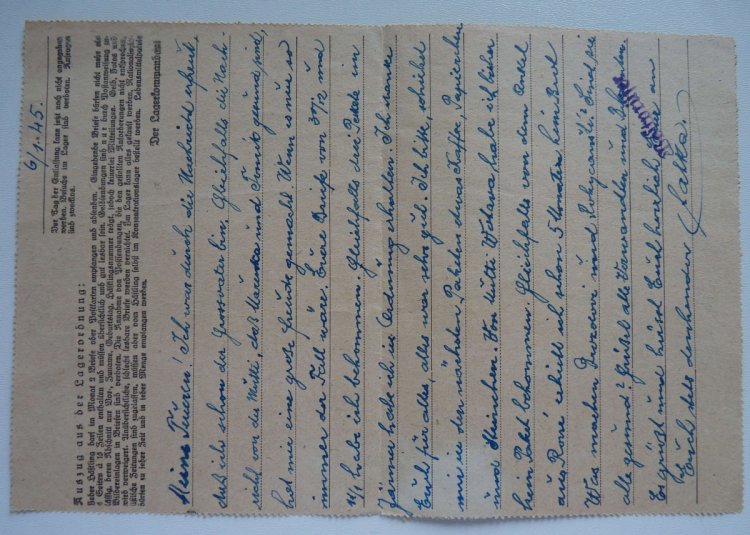 6/1.45.
Der Tag der Entlassung kann jetzt noch nicht angegeben
werden. Besuche im Lager sind verboten. Anfragen
sind zwecklos.
Auszug aus der Lagerordnung:
Jeder Häftling darf im Monat 2 Briefe oder Postkarten empfangen und absenden. Eingehende Briefe dürfen nicht mehr als
4 Seiten à 15 Zeilen enthalten und müssen übersichtlich und gut lesbar sein. Geldsendungen sind nur durch Postanweisung zu-
lässig, deren Abschnitt nur Vor-, Zuname, Geburtstag, Häftlingsnummer trägt, jedoch keinerlei Mitteilungen. Geld, Fotos und
Bildereinlagen in Briefen sind verboten. Die Annahme von Postsendungen, die den gestellten Anforderungen nicht entsprechen,
wird verweigert. Unübersichtliche, schlecht lesbare Briefe werden vernichtet. Im Lager kann alles gekauft werden. Nationalsozia-
listische Zeitungen sind zugelassen, müssen aber vom Häftling selbst im Konzentrationslager bestellt werden. Lebensmittelpakete
dürfen zu jeder Zeit und in jeder Menge empfangen werden.
Der Lagerkommandant
Meine Teueren! Ich war durch die Nachricht erfreut,
daß ich schon der Grossvater bin. Gleichfalls die Nach-
richt von der Mutti, daß und gesund sind,
hat mir eine große Freude gemacht. Wenn es nur so
immer der Fall wäre. Euere Briefe von und
4/1 habe ich bekommen. Gleichfalls drei Pakete im
Jänner habe ich in Ordnung erhalten. Ich danke
Euch für alles, alles war sehr gut. Ich bitte, schicket
mir in den nächsten Paketen etwas Kaffee, Papierchen
und Von Mutti habe ich bisher
kein Paket bekommen. Gleichfalls von dem Onkel
aus erhielt ich schon 5 Monate kein Brief
Was machen und Sind sie
alle gesund? Grüßet alle Verwandten und Bekannten.
Es grüßt und küsst Euch herzlich, an
Euch stets denkender